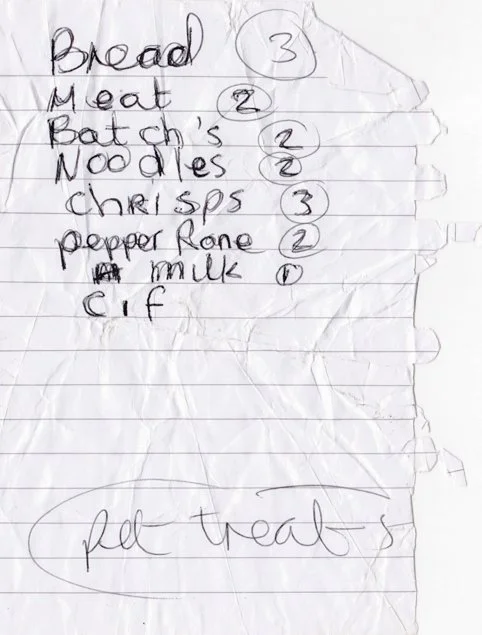 Bread 3
Meat 2
Batch's 2
Noodles 2
chrisps 3
pepper Rone 2
milk 1
cif
pet treats